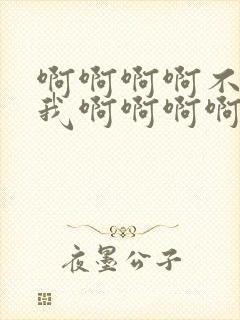 啊啊啊啊不
我啊啊啊啊
夜墨公子